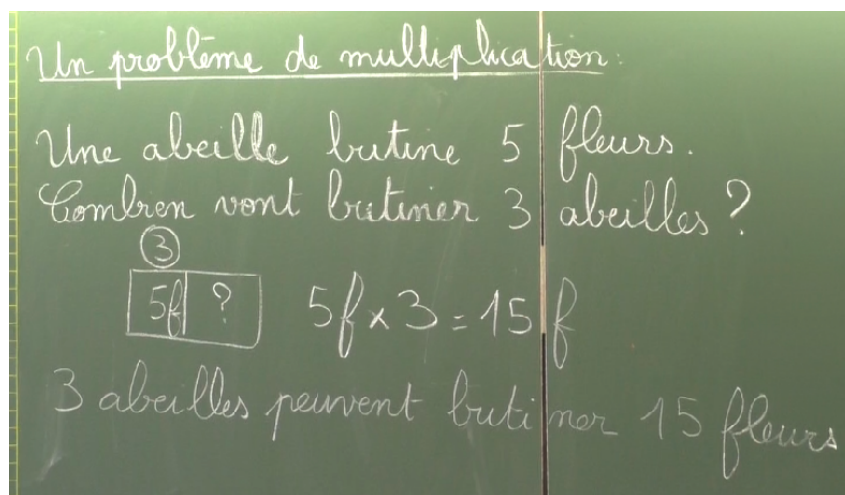 Un problème de multiplication:
Une abeille butine 5 fleurs.
Combien vont butiner 3 abeilles ?
3
5f ? 5f x 3 = 15 f
3 abeilles peuvent butiner 15 fleurs